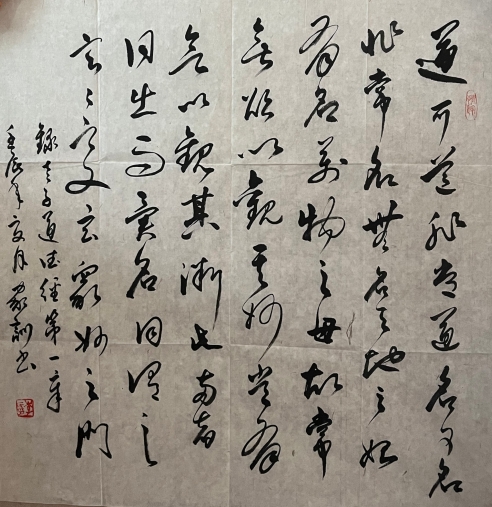 道可道非常道名可名
非常名無名天地之始
有名万物之母故常
無欲以觀其妙常有
以觀其徼此两者
同出而異名同谓之
玄々之又玄眾妙之門
錄老子道德經第一章
壬辰年夏月书